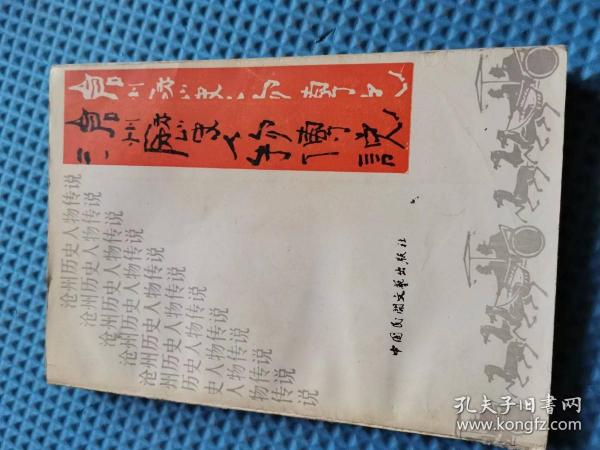 沧州历史人物传说
沧州历史人物传说
沧州历史人物传说
沧州历史人物传说
沧州历史人物传说
沧州历史人物传说
州历史人物传说
历史人物传说
史人物传说
人物传说
物传说
传说
说
中国民间文艺出版社
孔夫子旧书网